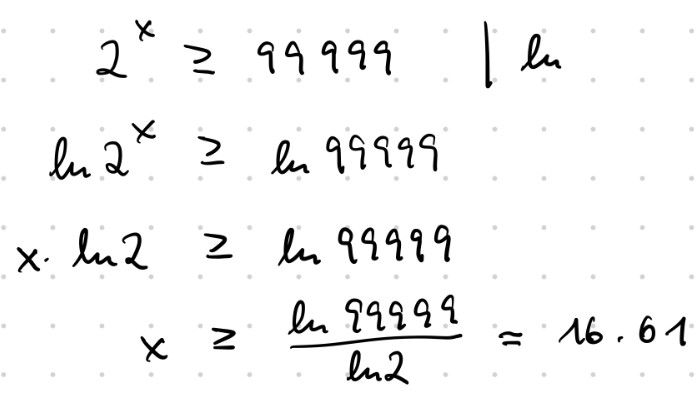 2^x ≥ 99999 | ln
ln 2^x ≥ ln 99999
x · ln 2 ≥ ln 99999
x ≥ ln 99999 / ln 2 = 16.61